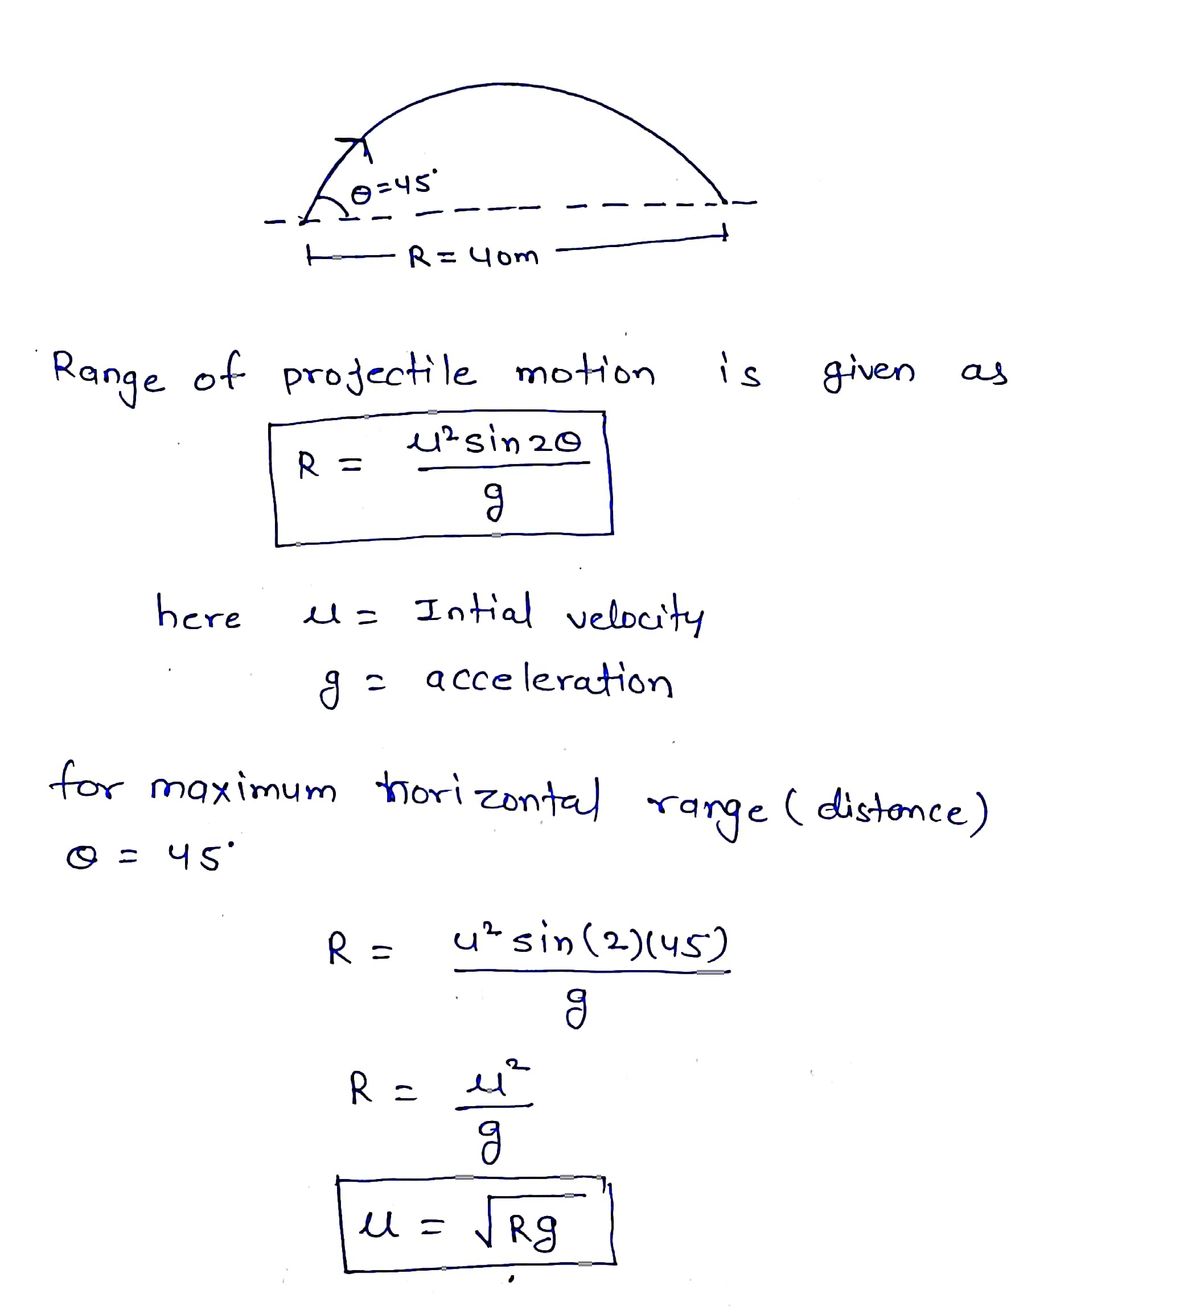 θ=45°
R = 40m
Range of projectile motion is given as
R = u² sin 2θ / g
here u = Intial velocity
g = acceleration
for maximum horizontal range (distance)
θ = 45°
R = u² sin(2)(45) / g
R = u² / g
u = √Rg